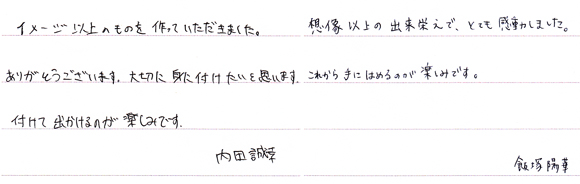 イメージ以上のものを作っていただきました。
ありがとうございます。大切に身に付けたいと思います。
付けて出かけるのが楽しみです。
内田誠幸
想像以上の出来栄えで、とても感動しました。
これから手にはめるのが楽しみです。
飯塚陽華